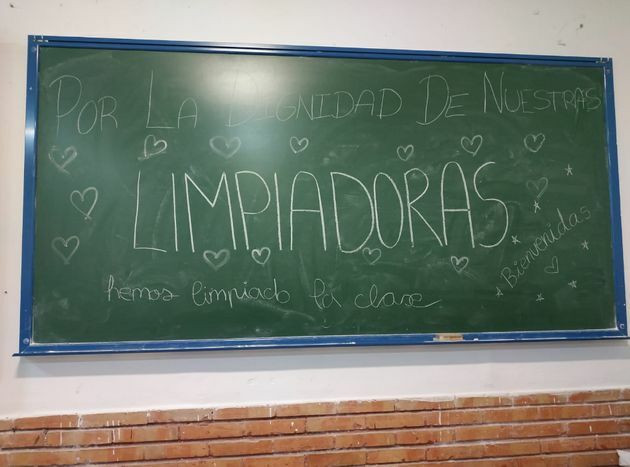 POR LA DIGNIDAD DE NUESTRAS
LIMPIADORAS
Bienvenidas
hemos limpiado la clase